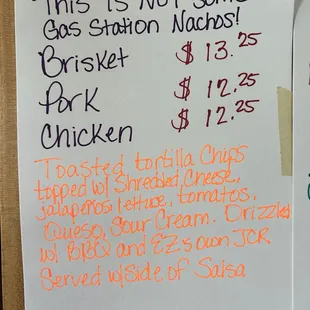 This is Not Some
Gas Station Nachos!
Brisket $13.25
Pork $12.25
Chicken $12.25
Toasted tortilla Chips
topped w/ Shredded Cheese,
jalapenos, lettuce, tomatos,
Queso, Sour Cream. Drizzled
w/ BBQ and EZ's own JCR
Served w/ Side of Salsa